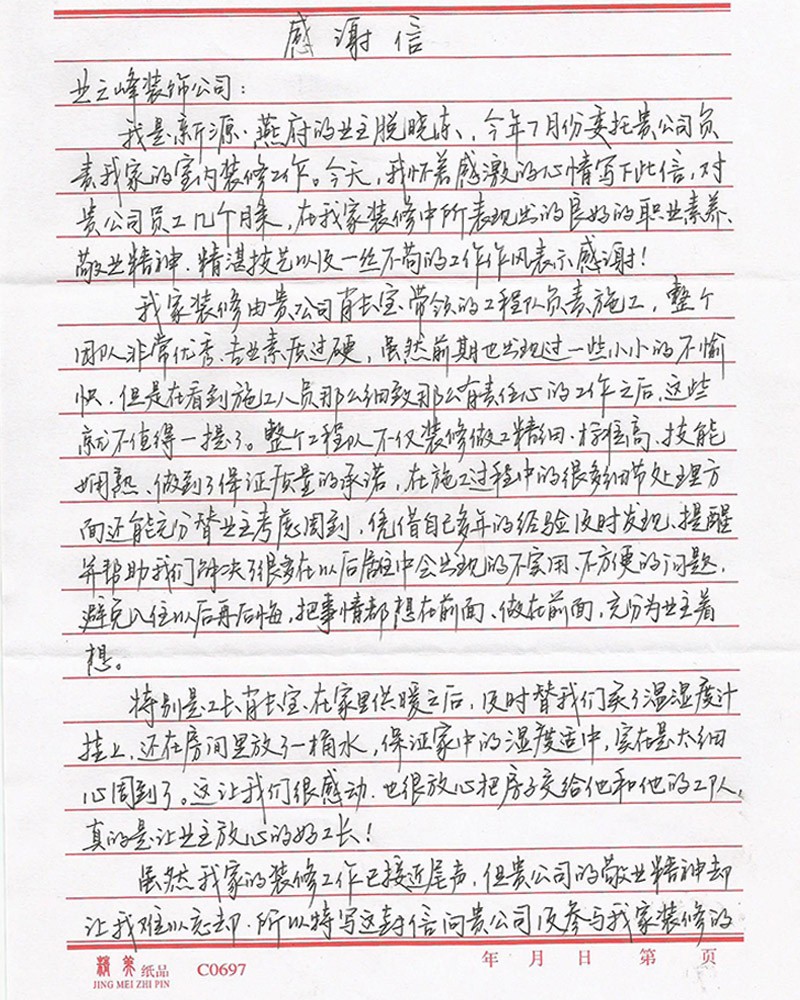 感谢信
业之峰装饰公司：
我是新源·燕府的业主脱晓东，今年7月份委托贵公司负
责我家的室内装修工作。今天，我怀着感激的心情写下此信，对
贵公司员工几个月来，在我家装修中所表现出的良好的职业素养、
敬业精神、精湛技艺以及一丝不苟的工作作风表示感谢！
我家装修由贵公司肖长宝带领的工程队负责施工，整个
团队非常优秀、专业素质过硬，虽然前期也出现过一些小小的不愉
快，但是在看到施工人员那么细致那么有责任心的工作之后，这些
就不值得一提了。整个工程队不仅装修做工精细、标准高、技能
娴熟、做到了保证质量的承诺，在施工过程中的很多细节处理方
面还能充分替业主考虑周到，凭借自己多年的经验及时发现、提醒
并帮助我们解决了很多在以后居住中会出现的不实用、不方便的问题，
避免入住以后再后悔，把事情都想在前面、做在前面，充分为业主着
想。
特别是工长肖长宝，在家里供暖之后，及时替我们买了温湿度计
挂上，还在房间里放了一桶水，保证家中的湿度适中，实在是太细
心周到了。这让我们很感动，也很放心把房子交给他和他的工队，
真的是让业主放心的好工长！
虽然我家的装修工作已接近尾声，但贵公司的敬业精神却
让我难以忘却，所以特写这封信向贵公司及参与我家装修的
精美纸品 C0697 年 月 日 第 页
JING MEI ZHI PIN